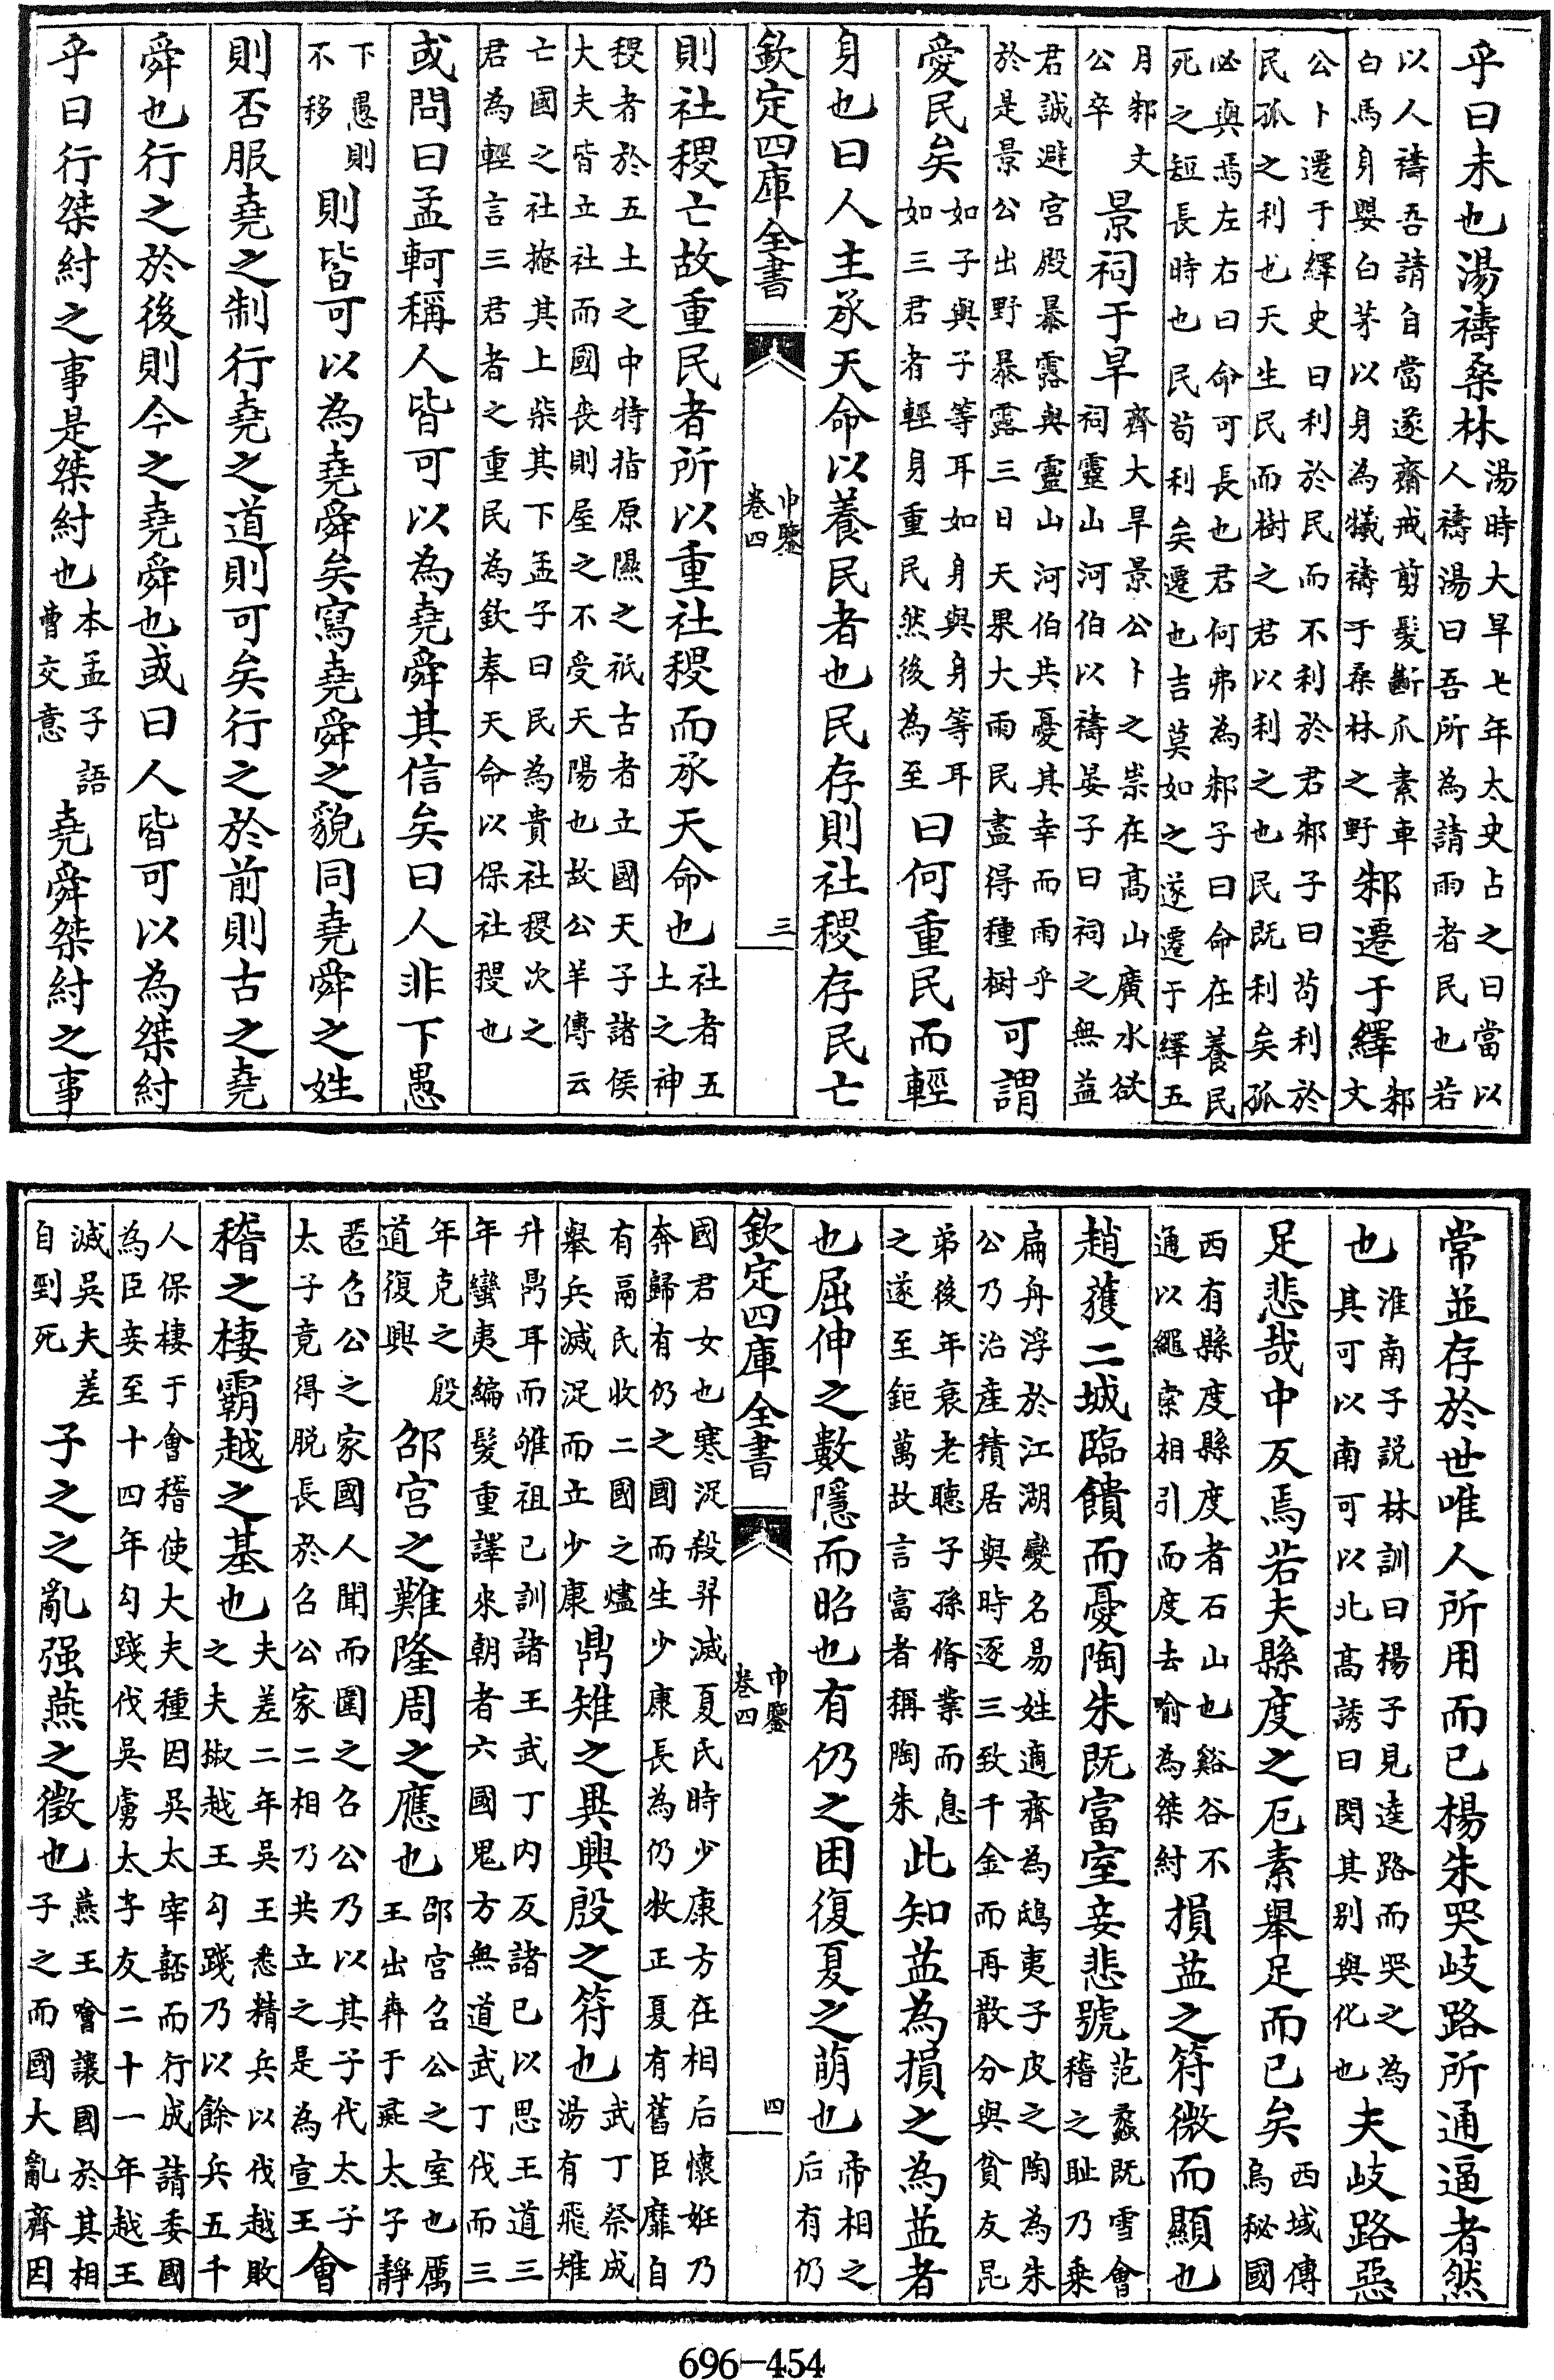 乎曰未也湯禱桑林湯時大旱七年太史占之曰當以人禱湯曰吾所為請雨者民也若
以人禱吾請自當遂齋戒剪髮斷爪素車白馬身嬰白茅以身為犧禱于桑林之野邾遷于繹邾文
公卜遷于繹史曰利於民而不利於君邾子曰苟利於民孤之利也天生民而樹之君以利之也民既利矣孤
必與焉左右曰命可長也君何弗為邾子曰命在養民死之短長時也民苟利矣遷也吉莫如之遂遷于繹五
月邾文公卒景祠于旱齊大旱景公卜之祟在高山廣水欲祠靈山河伯以禱晏子曰祠之無益
君誠避宮殿暴露與靈山河伯共憂其幸而雨乎於是景公出野暴露三日天果大雨民盡得種樹可謂
愛民矣如子與子等耳如身與身等耳如三君者輕身重民然後為至曰何重民而輕
身也曰人主承天命以養民者也民存則社稷存民亡
欽定四庫全書 申鑒卷四 三
則社稷亡故重民者所以重社稷而承天命也社者五土之神
稷者於五土之中特指原隰之祇古者立國天子諸侯大夫皆立社而國喪則屋之不受天陽也故公羊傳云
亡國之社掩其上柴其下孟子曰民為貴社稷次之君為輕言三君者之重民為欽奉天命以保社稷也
或問曰孟軻稱人皆可以為堯舜其信矣曰人非下愚
下愚則不移則皆可以為堯舜矣寫堯舜之貌同堯舜之姓
則否服堯之制行堯之道則可矣行之於前則古之堯
舜也行之於後則今之堯舜也或曰人皆可以為桀紂
乎曰行桀紂之事是桀紂也本孟子語曹交意堯舜桀紂之事
常並存於世唯人所用而已楊朱哭岐路所通逼者然
也淮南子説林訓曰楊子見逵路而哭之為其可以南可以北高誘曰閔其别與化也夫岐路惡
足悲哉中反焉若夫縣度之厄素舉足而已矣西域傳烏秘國
西有縣度縣度者石山也谿谷不通以繩索相引而度去喻為桀紂損益之符微而顯也
趙獲二城臨饋而憂陶朱既富室妾悲號范蠡既雪會稽之耻乃乘
扁舟浮於江湖變名易姓適齊為鴟夷子皮之陶為朱公乃治産積居與時逐三致千金而再散分與貧友昆
弟後年衰老聽子孫脩業而息之遂至鉅萬故言富者稱陶朱此知益為損之為益者
也屈伸之數隱而昭也有仍之困復夏之萌也帝相之后有仍
欽定四庫全書 申鑒卷四 四
國君女也寒浞殺羿滅夏氏時少康方在相后懷妊乃奔歸有仍之國而生少康長為仍牧正夏有舊臣靡自
有鬲氏收二國之燼舉兵滅浞而立少康鼎雉之異興殷之符也武丁祭成湯有飛雉
升鼎耳而雊祖已訓諸王武丁内反諸已以思王道三年蠻夷編髮重譯來朝者六國鬼方無道武丁伐而三
年克之殷道復興邵宮之難隆周之應也邵宮召公之室也厲王出奔于彘太子靜
匿召公之家國人聞而圍之召公乃以其子代太子太子竟得脱長於召公家二相乃共立之是為宣王會
稽之棲霸越之基也夫差二年吳王悉精兵以伐越敗之夫椒越王勾踐乃以餘兵五千
人保棲于會稽使大夫種因吳太宰嚭而行成請委國為臣妾至十四年勾踐伐吳虜太子友二十一年越王
滅吳夫差自剄死子之之亂强燕之徵也燕王噲讓國於其相子之而國大亂齊因
696-454